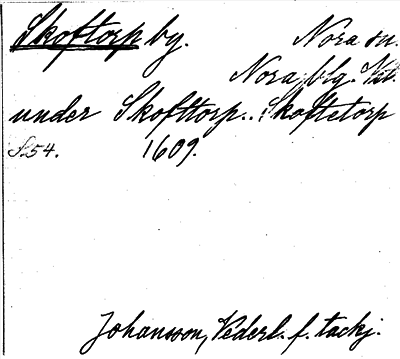 Skoftorp by. Nora sn.
Nora blg. Vtl.
under Skofttorp.. Skoftetorp
S.54. 1609.
Johansson, Vederl. f. tackj.